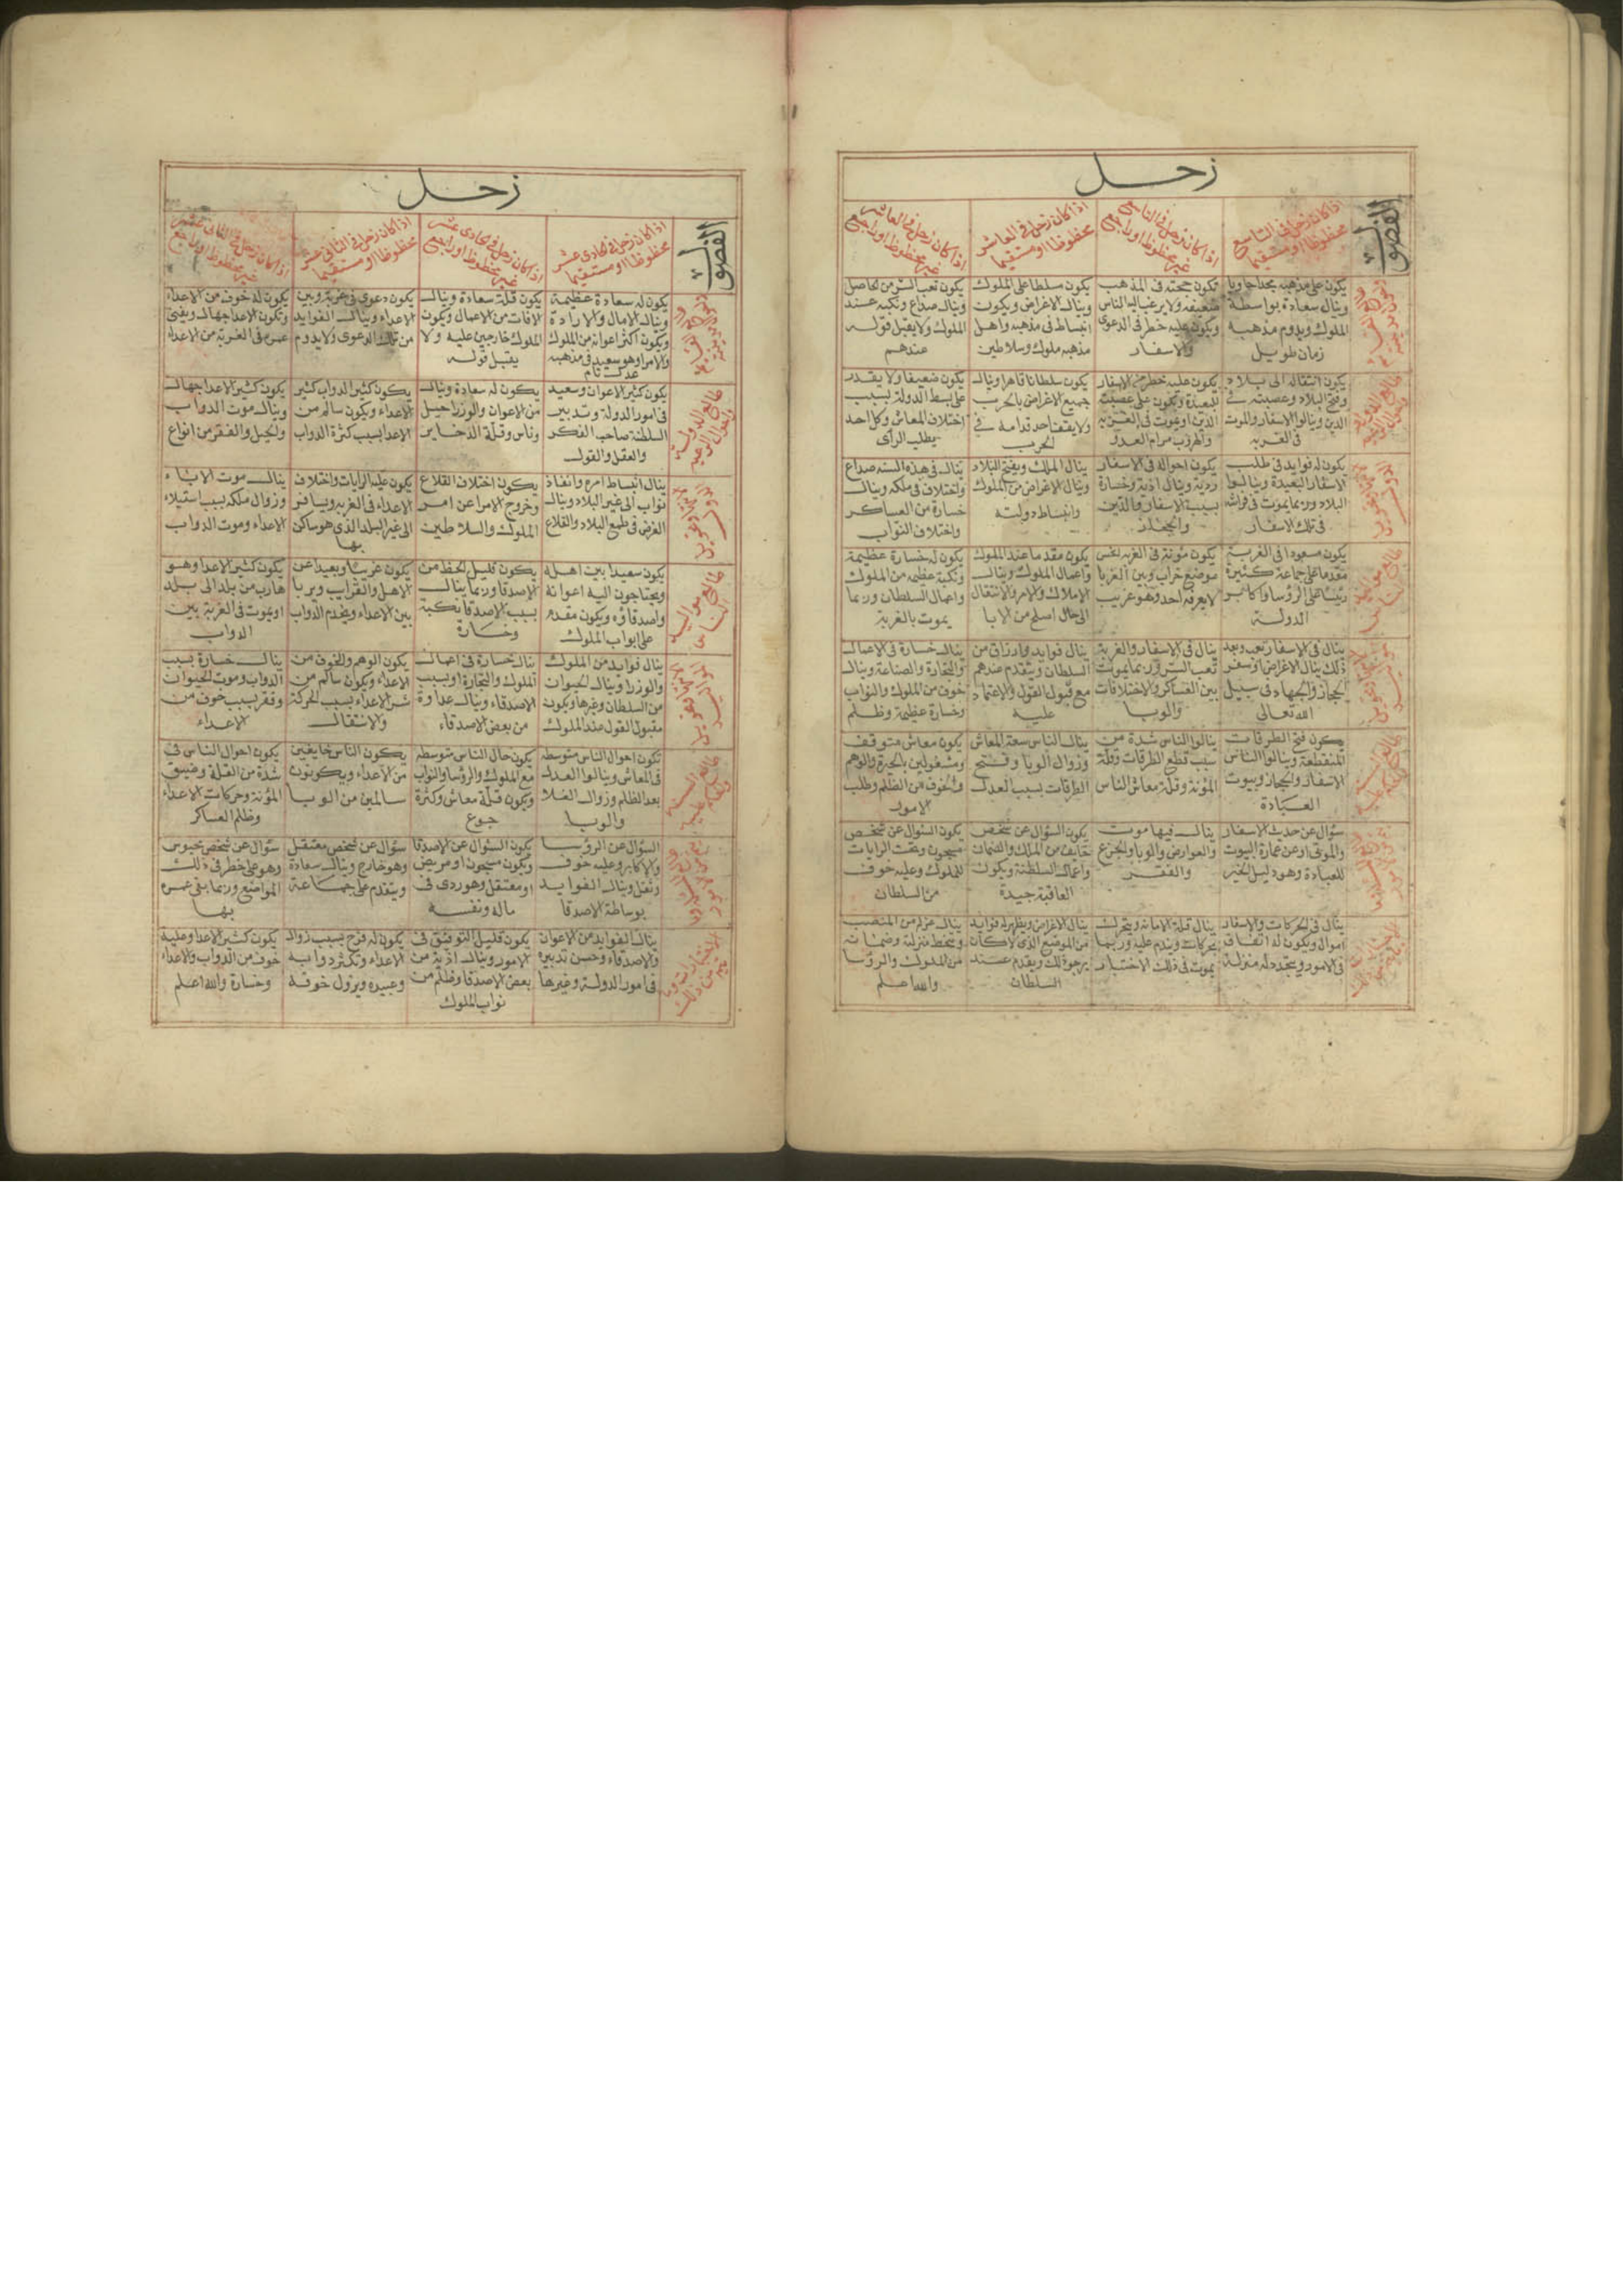 زحل
الفصول
اذا كان زحل في التاسع
محظوظا او مستقيما
اذا كان زحل في التاسع
غير محظوظ او راجع
اذا كان زحل في العاشر
محظوظا او مستقيما
اذا كان زحل في العاشر
غير محظوظ او راجع
يكون على مذهبه
وينال سعادة بواسطة
الملوك ويدوم مذهبه
زمان طويل
تكون حجته في المذهب
ضعيفه ولا يرغب اليه الناس
ويكون عليه خطر في الدعوى
والاسفار
يكون سلطا على الملوك
وينال الاغراض ويكون
انبساط في مذهبه واهل
مذهبه ملوك وسلاطين
وينال صداع ونكبه عند
الملوك ولا يقبل قوله
عندهم
يكون انتقاله الى بلاد
الدين وينالوا الاسفار والموت
في الغربه
يكون عليه خطر من الاسفار
البعيدة ويكون على عصبية
يكون سلطانا قاهرا وينال
جميع الاغراض بالحرب
ولا يقف احد قدامه في
الحرب
يكون ضعيفا ولا يقدر
على بسط الدولة بسبب
اختلاف المعاش وكل احد
يطلب الرأى
يكون له فوايد في طلب
الاسفار البعيدة وينالوا
البلاد وربما يموت في فراشه
في تلك الاسفار
يكون احواله في الاسفار
ردية وينال اذية وخسارة
بسبب الاسفار والدين
ينال الملك ويفتح البلاد
وينال الاغراض من الملوك
وانبساط دولته
ينال في هذه السنه صداع
واختلاف في ملكه وينال
خسارة من العساكر
واختلاف النواب
يكون مسعودا في الغربة
مقدما على جماعة كثيرة
رئيسا على الرؤسا واكابر
الدولة
لا يعرفه احد وهو غريب
يكون مقدما عند الملوك
واعمال الملوك وينال
الاملاك والامر والانتقال
الى حال اصلح من الابا
يكون له خسارة عظيمة
ونكبة عظيمه من الملوك
واعمال السلطان وربما
يموت بالغربة
ينال في الاسفار تعب وبعد
ذلك ينال الاغراض او سفر
الحجاز والجهاد في سبيل
الله تعالى
ينال في الاسفار والغربة
بين العساكر والاختلافات
والوبا
ينال فوايد وارزاق من
السلطان ويتقدم عندهم
مع قبول القول والاعتماد
عليه
ينال خسارة في الاعمال
والتجارة والصناعة وينال
خوف من الملوك والنواب
وخسارة عظيمة وظلم
يكون فتح الطرقات
المنقطعة وينالوا الناس
الاسفار والحجاز وبيوت
العبادة
ينالوا الناس شدة من
سبب قطع الطرقات وقلة
المؤنة وقلة معاش الناس
ينال الناس سعة المعاش
وزوال الوبا وفتح
الطرقات بسبب العدل
يكون معاش متوقف
ومشغولين بالحيرة والوهم
والخوف من الظلم وطلب
الامور
سؤال عن حدث الاسفار
والموتى او عن عمارة البيوت
للعبادة وهو دليل الخير
ينال فيها موت
والعوارض والوبا والجزع
والفقر
يكون السؤال عن شخص
خايف من الملك والضمان
واعمال السلطنة ويكون
العاقبة جيدة
يكون السؤال عن شخص
مسجون وتحت الرايات
للملوك وعليه خوف
من السلطان
ينال في الحركات والاسفار
اموال ويكون له اتفاق
في الامور ويتجدد له منزلة
ينال قلة الامانه ويتحرك
بحركات ويندم عليه وربما
يموت في ذلك الاختيار
ينال الاغراض ويظهر له فوايد
من الموضع الذي لا كان
يرجو ذلك ويقدم عند
السلطان
ينال عزله من المنصب
من الملوك والرؤسا
والله اعلم
زحل
الفصول
اذا كان زحل في الحادى عشر
محظوظا او مستقيما
اذا كان زحل في الحادى عشر
غير محظوظ او راجع
اذا كان زحل في الثاني عشر
محظوظا او مستقيما
اذا كان زحل في الثاني عشر
غير محظوظ او راجع
يكون له سعادة عظيمة
وينال الامال والارادة
ويكون اكثر اعوانه من الملوك
والامرا وهو سعيد في مذهبه
عدل تام
يكون قلة سعادة وينال
الافات من الاعمال ويكون
الملوك خارجين عليه ولا
يقبل قوله
يكون دعوى في غربة وبين
الاعداء وينال الفوايد
من تلك الدعوى ولا يدوم
يكون له خوف من الاعداء
وتكون الاعدا جهال ويفنى
عمره في الغربة من الاعداء
يكون كثير الاعوان وسعيد
في امور الدولة وتدبير
السلطنة صاحب الفكر
والعقل والقول
يكون له سعادة وينال
من الاعوان والوزرا حيل
وناس وقلة الذخاير
يكون كثير الدواب كثير
الاعداء ويكون سالم من
الاعدا بسبب كثرة الدواب
يكون كثير الاعدا جهال
وينال موت الدواب
والخيل والفقر من انواع
ينال انبساط امره وانفاذ
نواب الى غير البلاد وينال
الغرض في طمع البلاد والقلاع
يكون اختلاف القلاع
وخروج الامرا عن امر
الملوك والسلاطين
يكون عليه الرايات واختلاف
الاعداء في الغربه ويسافر
الى غير البلد الذي هو ساكن
بها
ينال موت الاباء
وزوال ملكه بسبب استيلاء
الاعداء وموت الدواب
يكون سعيدا بين اهله
ويحتاجون اليه اعوانه
واصدقاؤه ويكون مقدم
على ابواب الملوك
يكون قليل الحظ من
الاصدقا وربما ينال
بسبب الاصدقا نكبة
وخسارة
يكون غريبا وبعيدا عن
الاهل والقرايب ويربا
بين الاعداء ويخدم الدواب
يكون كثير الاعدا وهو
هارب من بلد الى بلد
او يموت في الغربة بين
الدواب
ينال فوايد من الملوك
والوزرا وينال الحيوان
من السلطان وغيرها ويكون
مقبول القول عند الملوك
ينال خسارة في اعمال
الملوك والتجارة او بسبب
الاصدقاء وينال عداوة
من بعض الاصدقاء
يكون الوهم والخوف من
الاعداء ويكون سالم من
شر الاعداء بسبب الحركة
والانتقال
ينال خسارة بسبب
الدواب وموت الحيوان
وفقر بسبب خوف من
الاعداء
تكون احوال الناس متوسطه
في المعاش وينالوا العدل
بعد الظلم وزوال الغلا
والوبا
يكون حال الناس متوسطه
مع الملوك والرؤسا والنواب
ويكون قلة معاش وكثرة
جوع
يكون الناس خايفين
من الاعداء ويكونون
سالمين من الوبا
يكون احوال الناس في
شدة من القلة وضيق
المؤنة وحركات الاعداء
وظلم العساكر
السؤال عن الرؤسا
والاكابر وعليه خوف
وثقل وينال الفوايد
بوساطة الاصدقا
يكون السؤال عن الاصدقا
ويكون مسجون او مريض
او معتقل وهو ردى في
ماله ونفسه
سؤال عن شخص معتقل
وهو خارج وينال سعادة
ويتقدم على جماعة
سؤال عن شخص محبوس
وهو على خطر في ذلك
المواضع وربما يفنى عمره
بها
ينال الفوايد من الاعوان
والاصدقاء وحسن تدبيره
في امور الدولة وغيرها
يكون قليل التوفيق في
الامور وينال اذية من
بعض الاصدقا وظلم من
نواب الملوك
يكون له فرح بسبب زوال
الاعداء وتكثر دوابه
وعبيده ويزول خوفه
يكون كثير الاعدا وعليه
خوف من الدواب والاعداء
وخسارة والله اعلم